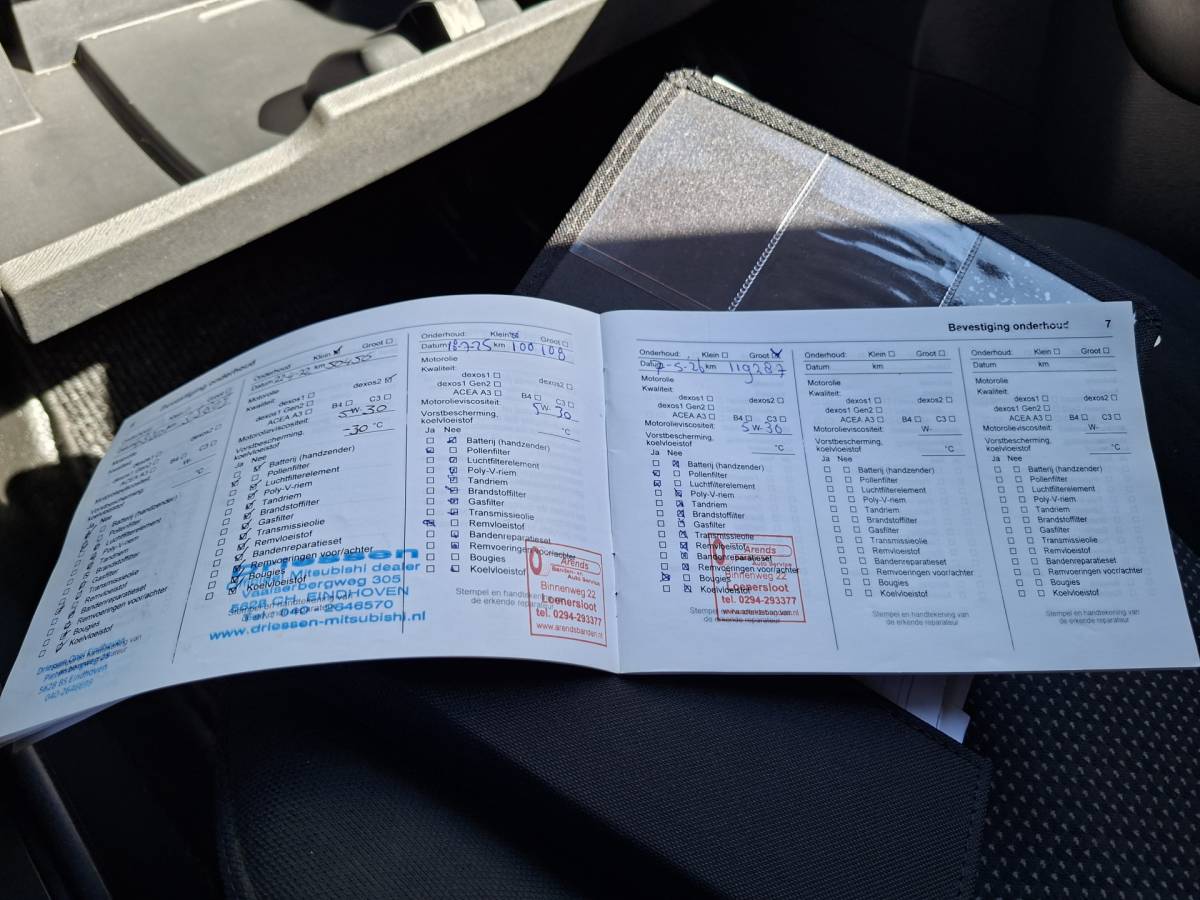 Bevestiging onderhoud 7
dexos2
°C
Vorstbescherming,
koelvloeistof
Ja Nee
Batterij (handzender)
Pollenfilter
Luchtfilterelement
Poly-V-riem
Tandriem
Brandstoffilter
Gasfilter
Transmissieolie
Remvloeistof
Bandenreparatieset
Remvoeringen voor/achter
Bougies
Koelvloeistof
5628 BS Eindhoven
040-2646
Onderhoud: Klein Groot
Datum km
Kwaliteit: dexos1 dexos2
dexos1 Gen2
ACEA A3 B4 C3
Motorolieviscositeit: 5W-30
Vorstbescherming,
koelvloeistof -30 °C
Ja Nee
Batterij (handzender)
Pollenfilter
Luchtfilterelement
Poly-V-riem
Tandriem
Brandstoffilter
Gasfilter
Transmissieolie
Remvloeistof
Bandenreparatieset
Remvoeringen voor/achter
Bougies
Koelvloeistof
Mitsubishi dealer
305
5628 CH EINDHOVEN
Tel. 040-2646570
www.driessen-mitsubishi.nl
Onderhoud: Klein Groot
Datum 18-7-25 km 100108
Motorolie
Kwaliteit:
dexos1 dexos2
dexos1 Gen2
ACEA A3 B4 C3
Motorolieviscositeit: 5W-30
Vorstbescherming,
koelvloeistof °C
Ja Nee
Batterij (handzender)
Pollenfilter
Luchtfilterelement
Poly-V-riem
Tandriem
Brandstoffilter
Gasfilter
Transmissieolie
Remvloeistof
Bandenreparatieset
Remvoeringen voor/achter
Bougies
Koelvloeistof
Stempel en handtekening van
de erkende reparateur
Arends
Banden- en
Auto Service
Binnenweg 22
Loenersloot
tel. 0294-293377
www.arendsbanden.nl
Onderhoud: Klein Groot
Datum 7-5-26 km 119287
Motorolie
Kwaliteit:
dexos1 dexos2
dexos1 Gen2
ACEA A3 B4 C3
Motorolieviscositeit: 5W-30
Vorstbescherming,
koelvloeistof °C
Ja Nee
Batterij (handzender)
Pollenfilter
Luchtfilterelement
Poly-V-riem
Tandriem
Brandstoffilter
Gasfilter
Transmissieolie
Remvloeistof
Bandenreparatieset
Remvoeringen voor/achter
Bougies
Koelvloeistof
Stempel en handtekening van
de erkende reparateur
Arends
Banden- en
Auto Service
Binnenweg 22
Loenersloot
tel. 0294-293377
www.arendsbanden.nl
Onderhoud: Klein Groot
Datum km
Motorolie
Kwaliteit:
dexos1 dexos2
dexos1 Gen2
ACEA A3 B4 C3
Motorolieviscositeit: W-
Vorstbescherming,
koelvloeistof °C
Ja Nee
Batterij (handzender)
Pollenfilter
Luchtfilterelement
Poly-V-riem
Tandriem
Brandstoffilter
Gasfilter
Transmissieolie
Remvloeistof
Bandenreparatieset
Remvoeringen voor/achter
Bougies
Koelvloeistof
Stempel en handtekening van
de erkende reparateur
Onderhoud: Klein Groot
Datum km
Motorolie
Kwaliteit:
dexos1 dexos2
dexos1 Gen2
ACEA A3 B4 C3
Motorolieviscositeit: W-
Vorstbescherming,
koelvloeistof °C
Ja Nee
Batterij (handzender)
Pollenfilter
Luchtfilterelement
Poly-V-riem
Tandriem
Brandstoffilter
Gasfilter
Transmissieolie
Remvloeistof
Bandenreparatieset
Remvoeringen voor/achter
Bougies
Koelvloeistof
Stempel en handtekening van
de erkende reparateur